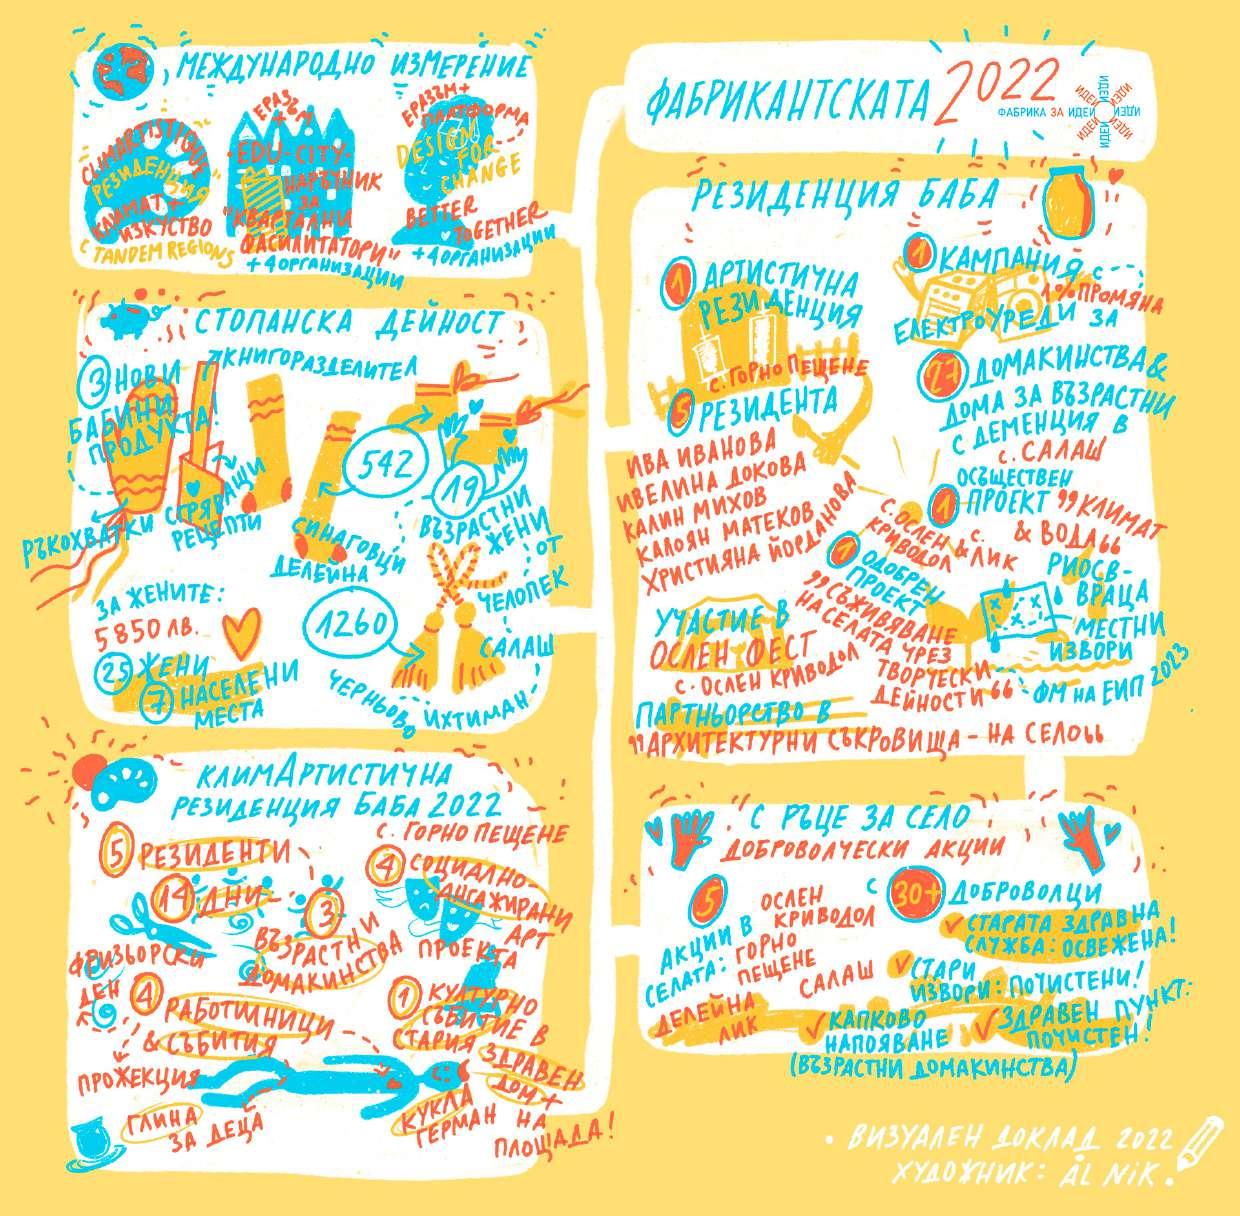 ФАБРИКАНТСКАТА 2022
ФАБРИКА ЗА ИДЕИ
ИДЕИ
ИДЕИ
ИДЕИ
ИДЕИ
ИДЕИ
ИДЕИ
ИДЕИ
МЕЖДУНАРОДНО ИЗМЕРЕНИЕ
"CLIMARTISTIQUE"
РЕЗИДЕНЦИЯ
КЛИМАТ +
ИЗКУСТВО
С TANDEM REGIONS
ЕРАЗЪМ
+
EDU-CITY
НАРЪЧНИК
ЗА
"КВАРТАЛНИ
ФАСИЛИТАТОРИ"
+ 4 ОРГАНИЗАЦИИ
ЕРАЗЪМ+
ПЛАТФОРМА
DESIGN
FOR
CHANGE
BETTER
TOGETHER
+ 4 ОРГАНИЗАЦИИ
СТОПАНСКА ДЕЙНОСТ
3 НОВИ
БАБИНИ
ПРОДУКТА!
КНИГОРАЗДЕЛИТЕЛ
РЪКОХВАТКИ
СГРЯВАЩИ
РЕЦЕПТИ
542
19
ВЪЗРАСТНИ
ЖЕНИ
ОТ
СИНАГОВЦИ
ДЕЛЕЙНА
ЧЕЛОПЕК
САЛАШ
ИХТИМАН
ЧЕРНЬОВО
1260
ЗА ЖЕНИТЕ:
5 850 ЛВ.
25 ЖЕНИ
7 НАСЕЛЕНИ
МЕСТА
КЛИМАРТИСТИЧНА
РЕЗИДЕНЦИЯ БАБА 2022
С. ГОРНО ПЕЩЕНЕ
5 РЕЗИДЕНТИ
14 ДНИ
3
ВЪЗРАСТНИ
ДОМАКИНСТВА
4 СОЦИАЛНО-
АНГАЖИРАНИ
АРТ
ПРОЕКТА
ФРИЗЬОРСКИ
ДЕН
4 РАБОТИЛНИЦИ
& СЪБИТИЯ
ПРОЖЕКЦИЯ
ГЛИНА
ЗА ДЕЦА
1 КУЛТУРНО
СЪБИТИЕ В
СТАРИЯ ЗДРАВЕН
ДОМ +
НА
ПЛОЩАДА!
КУКЛА
ГЕРМАН
РЕЗИДЕНЦИЯ БАБА
1 АРТИСТИЧНА
РЕЗИДЕНЦИЯ
С. ГОРНО ПЕЩЕНЕ
5 РЕЗИДЕНТА
ИВА ИВАНОВА
ИВЕЛИНА ДОКОВА
КАЛИН МИХОВ
КАЛОЯН МАТЕКОВ
ХРИСТИЯНА ЙОРДАНОВА
1 КАМПАНИЯ С
1% ПРОМЯНА
ЕЛЕКТРОУРЕДИ ЗА
27 ДОМАКИНСТВА &
ДОМА ЗА ВЪЗРАСТНИ
С ДЕМЕНЦИЯ В
С. САЛАШ
ОСЪЩЕСТВЕН
1 ПРОЕКТ „КЛИМАТ
& ВОДА“
С. ОСЛЕН
КРИВОДОЛ &
С.
ЛИК
РИОСВ-
ВРАЦА
МЕСТНИ
ИЗВОРИ
1 ОДОБРЕН
ПРОЕКТ
„СЪЖИВЯВАНЕ
НА СЕЛАТА ЧРЕЗ
ТВОРЧЕСКИ
ДЕЙНОСТИ“
ФМ НА ЕИП 2023
УЧАСТИЕ В
ОСЛЕН ФЕСТ
С. ОСЛЕН КРИВОДОЛ
ПАРТНЬОРСТВО В
„АРХИТЕКТУРНИ СЪКРОВИЩА - НА СЕЛО“
С РЪЦЕ ЗА СЕЛО
ДОБРОВОЛЧЕСКИ АКЦИИ
5
АКЦИИ В
СЕЛАТА:
ОСЛЕН
КРИВОДОЛ
ГОРНО
ПЕЩЕНЕ
САЛАШ
ДЕЛЕЙНА
ЛИК
С 30+ ДОБРОВОЛЦИ
СТАРАТА ЗДРАВНА
СЛУЖБА: ОСВЕЖЕНА!
СТАРИ
ИЗВОРИ: ПОЧИСТЕНИ!
КАПКОВО
НАПОЯВАНЕ
(ВЪЗРАСТНИ ДОМАКИНСТВА)
ЗДРАВЕН ПУНКТ:
ПОЧИСТЕН!
ВИЗУАЛЕН ДОКЛАД 2022
ХУДОЖНИК: ÅL NiK.